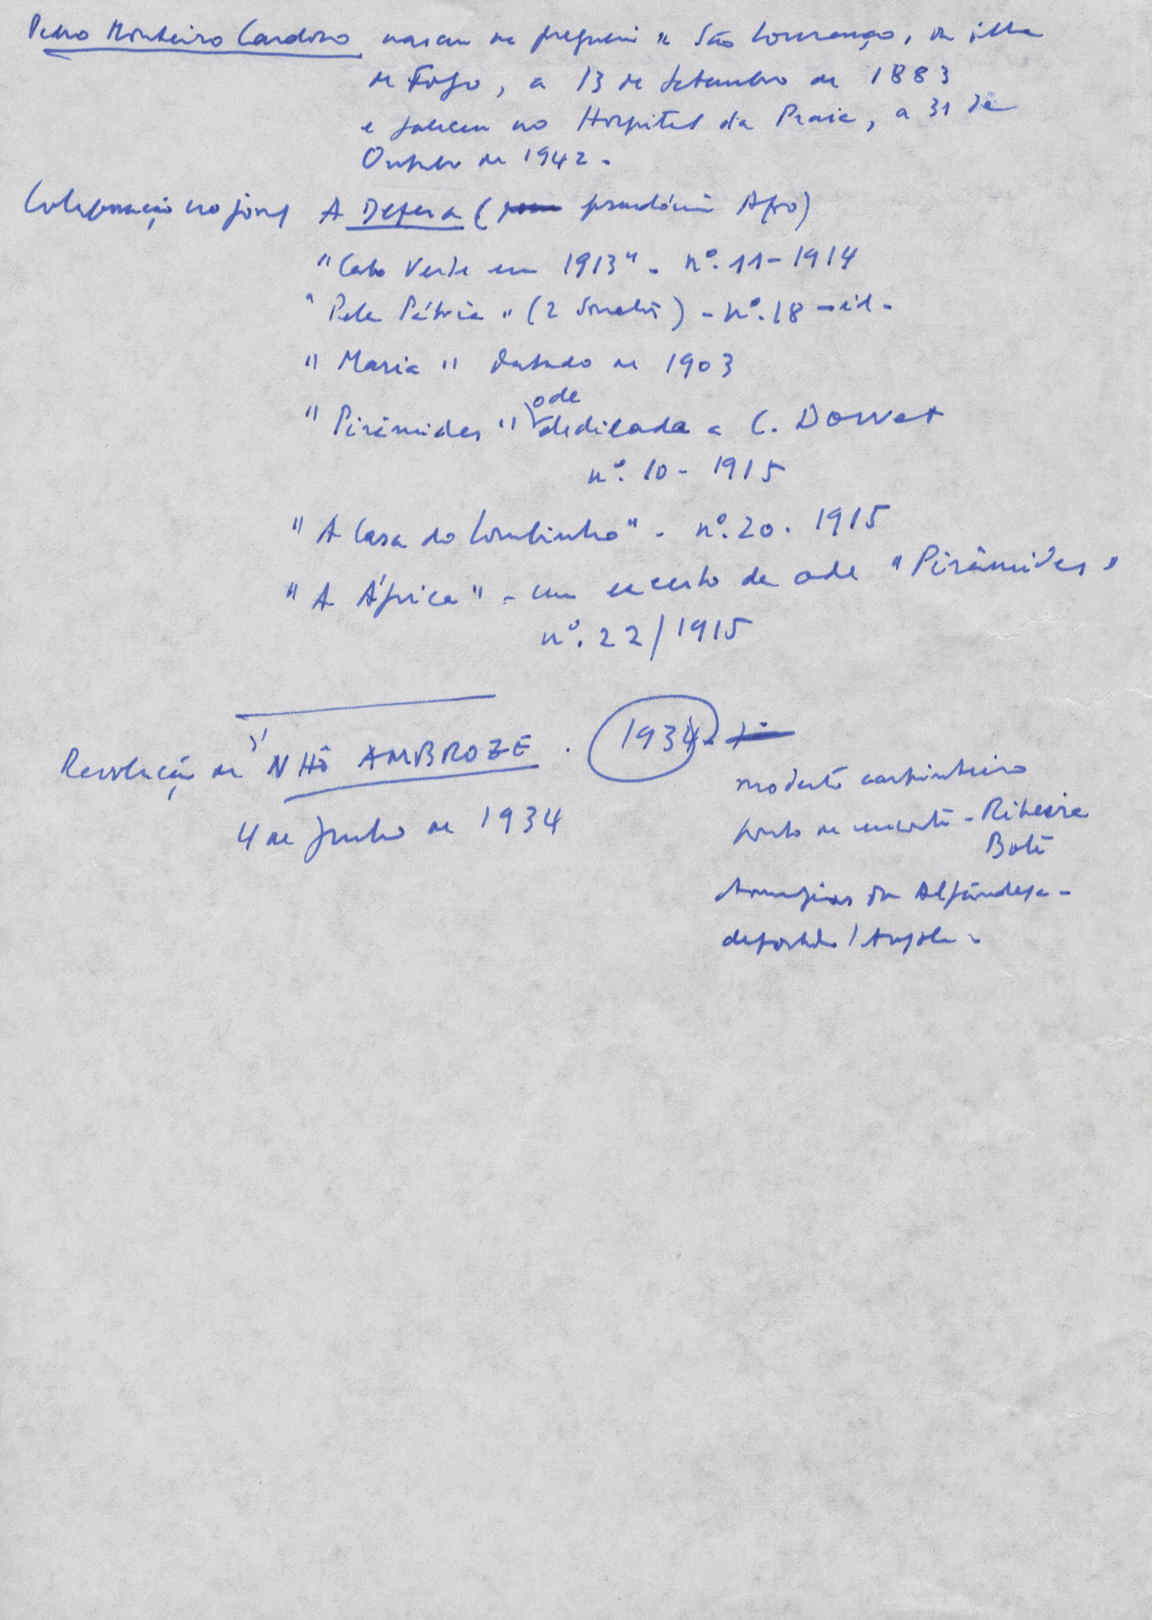 Pedro Monteiro Cardoso nasceu na freguesia de São Lourenço, da ilha
de Fogo, a 13 de Setembro de 1883
e faleceu no Hospital da Praia, a 31 de
Outubro de 1942.
Colaboração no jornal A Defesa (pseudónimo Afro)
"Cabo Verde em 1913" - nº. 11 - 1914
"Pela Pátria" (2 sonetos) - nº. 18 - id -
"Maria" datado de 1903
"Pirâmides" ode dedicada a C. Dorvat
nº. 10 - 1915
"A Casa do Lombinho" - nº. 20. 1915
"A África" - um excerto da ode "Pirâmides"
nº. 22/1915
Revolução de "NHÔ AMBROZE. 1934 -
modesto carpinteiro
ponto de encontro - Ribeira
Bote
Armazéns da Alfândega -
deportado / Angola -
4 de Junho de 1934